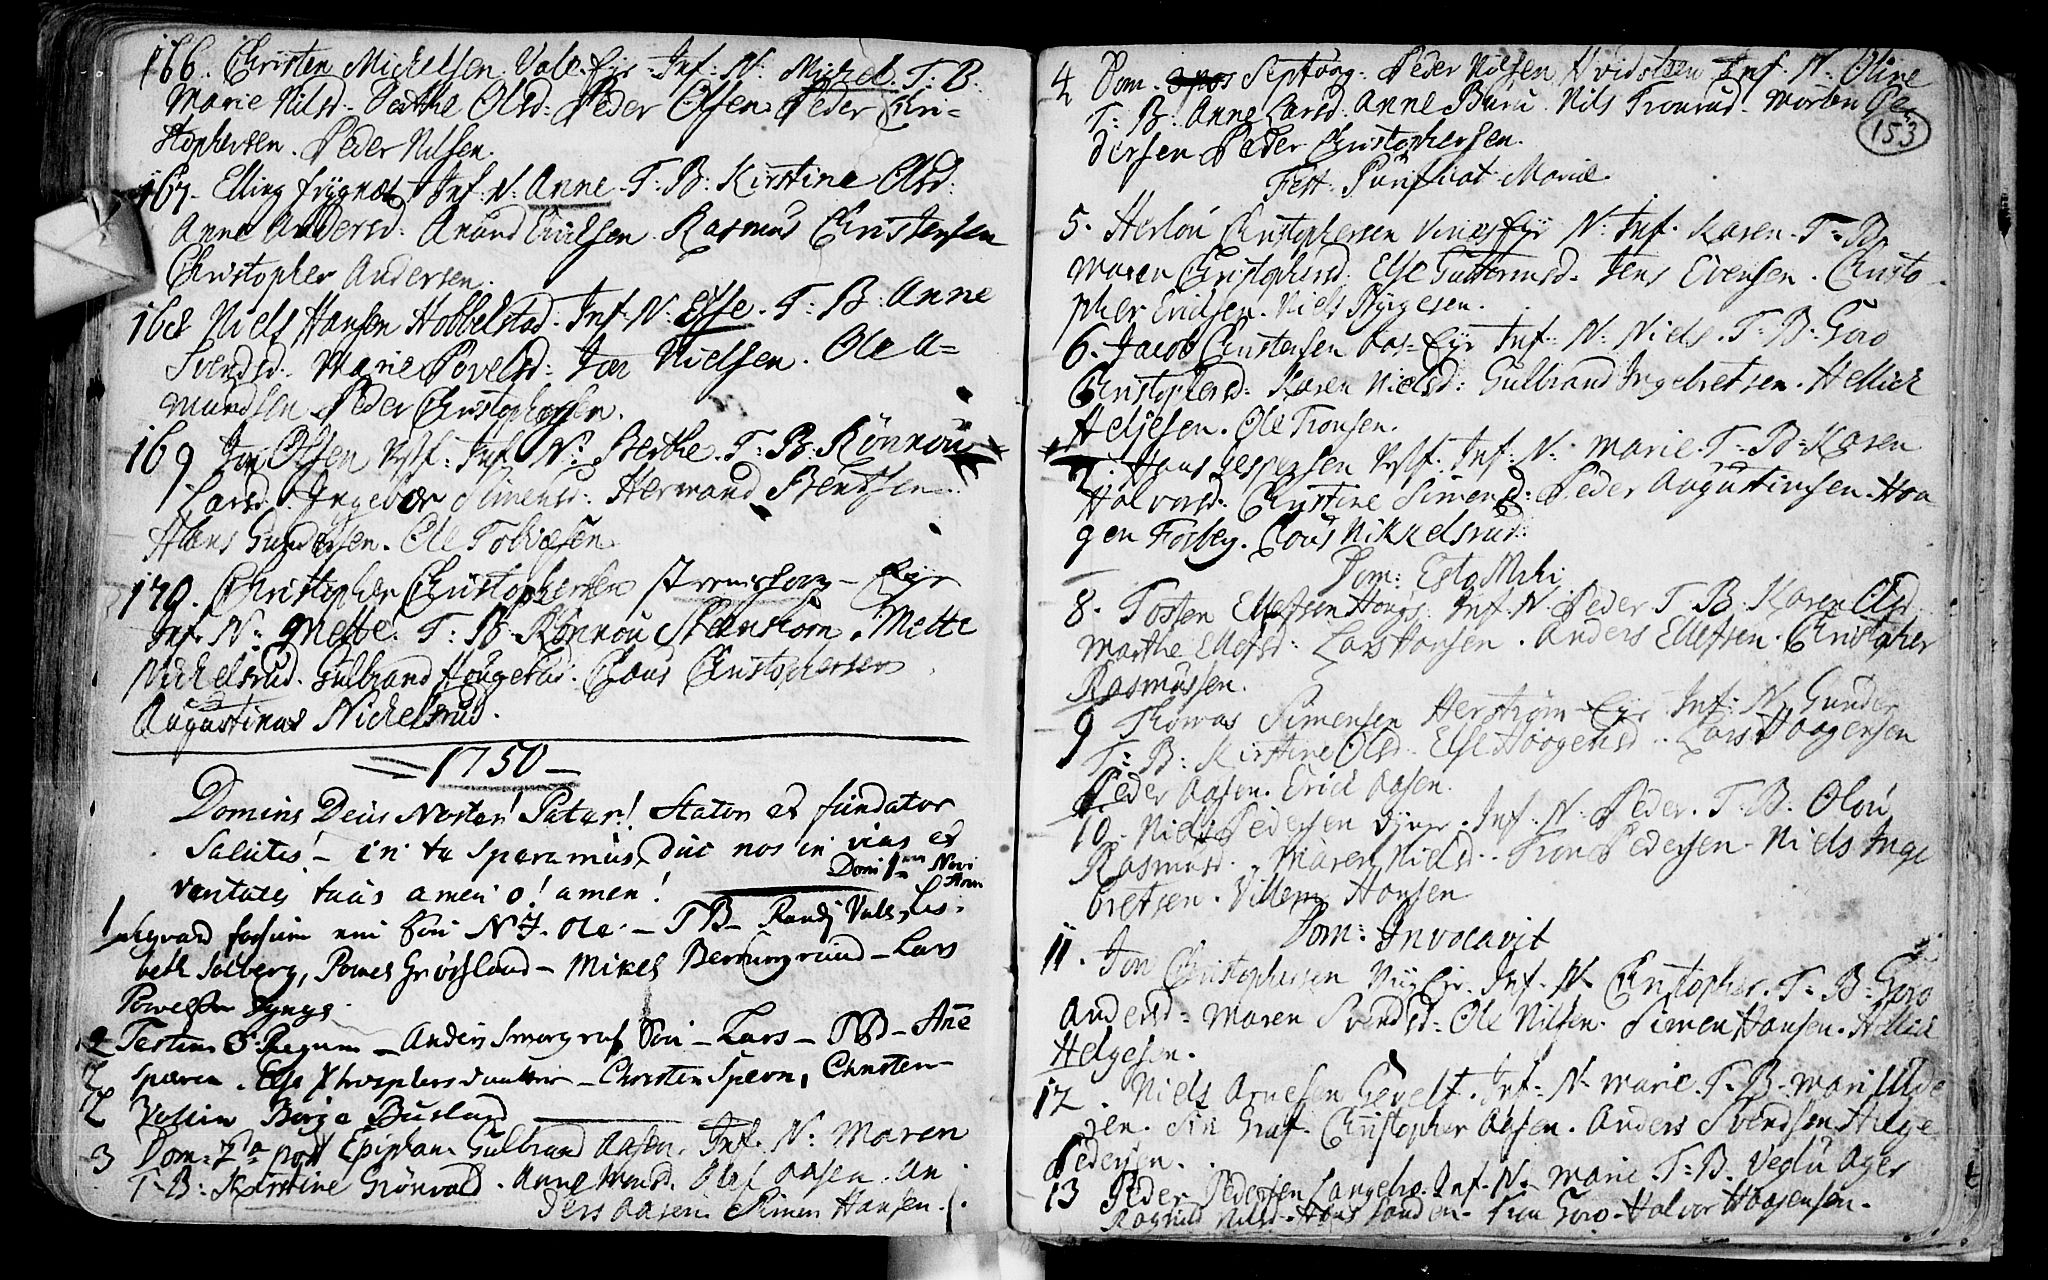 166. Christen Michelsen Vale. Ejr. Inf: N: Michel. T: B.
Marie Nilsd. Berthe Olsd: Peder Olsen. Peder Chri-
stophersen. Peder Nilsen.
167. Elling Inf: N: Anne. T: B: Kirstine Olsd:
Anne Andersd. Amund Rasmus Christensen
Christopher Andersen.
168 Niels Hansen Hobbelstad. Inf: N: Else. T: B: Anne
Svendsd. Marie Povelsd: Nielsen. Ole A=
mundsen Peder Christophersen.
169 Jon Olsen Inf: N: Berthe. T: B. Rönnou
Larsd. Ingebor Simensd: Hermand Bentsen.
Hans Gundersen. Ole Tobiæsen
170. Christopher Christophersen Eijr
Inf. N: Mette. T: B. Rönnou Steenshorn. Mette
Nickelsrud. Gulbrand Hougerud: Claus Christophersen
Augustinus Nickelsrud.
1750
Domine Deus Noster! Pater! Stator et fundator
Salutis! - in te speramus, duc nos in vias et
veritates tuas amen o! amen! Dom 1 Novi
Ann
1 fossum Sön N J. Ole - TB - Randj Vale, Lis-
beth Solberg, Grøsland - Mikel - Lars
Povelsen
2 Festum S. Regum - Anders Sön - Lars - TB - Ane
Else - Christen Spærn, Christen
Børge Busland
3 Dom: 2da post Epiphan. Gulbrand Aasen. Inf. N: Maren
T. B: Kirstine Grönvold. Anne Olef Aasen. An
ders Aasen. Simen Hansen.
4 Dom. Septuag. Peder Nilsen Hvidsteen Inf. N: Oline
T: B. Anne Larsd. Anne Buru. Nils Tronrud. Morten Pe
153
dersen Peder Christophersen.
Fest. Purificat. Mariæ.
5. Herlou Christophersen Eijr N: Inf. Karen. T: B:
Maren Christophersd. Else Guttormsd. Jens Evensen. Christo
pher Ericksen. Niels
6. Jacob Christensen Aas: Eijr Inf: N: Niels. T: B: Goro
Christophersd. Karen Nielsd: Gulbrand Ingebretsen. Hellich
Heljesen. Ole Tronsen.
7. Hans Jespersen Inf: N: Marie. T: B: Karen
Halvorsd. Christine Simensd: Peder Augustinsen. Haa
gen Fosbey. Claus Nikkelsrud:
Dom: Esto Mihi
8. Tosten Ellefsen Houg. Inf. N. Peder T. B. Karen Olsd.
Marthe Ellefsd: Lars Hansen. Anders Ellefsen. Christopher
Rasmussen.
9 Thomas Simensen Herström Eijr Inf: N: Gunder
T: B: Kirstine Olsd. Else Haagensd. Lars Haagensen
Peder Aasen. Erick Aasen.
10. Niels Pedersen Inf. N. Peder. T. B. Olou
Rasmusd. Maren Nielsd. Tron Pedersen. Niels Inge
bretsen. Villem Hansen
Dom: Invocavit
11. Jon Christophersen Eijr. Inf. N Christopher. T: B: Goro
Andersd: Maren Svendsd: Ole Nilsen. Simen Hansen. Hellich
Helgesen.
12. Niels Arnesen Gevelt. Inf: N: Marie. T: B.
Siri Graf. Christopher Aasen. Anders Svendsen Helge
Pedersen.
13 Peder Pedersen Inf: N: Marie. T: B. Ager
Ragnild Nilsd. Hans Tron Goro. Halvor Haagensen.